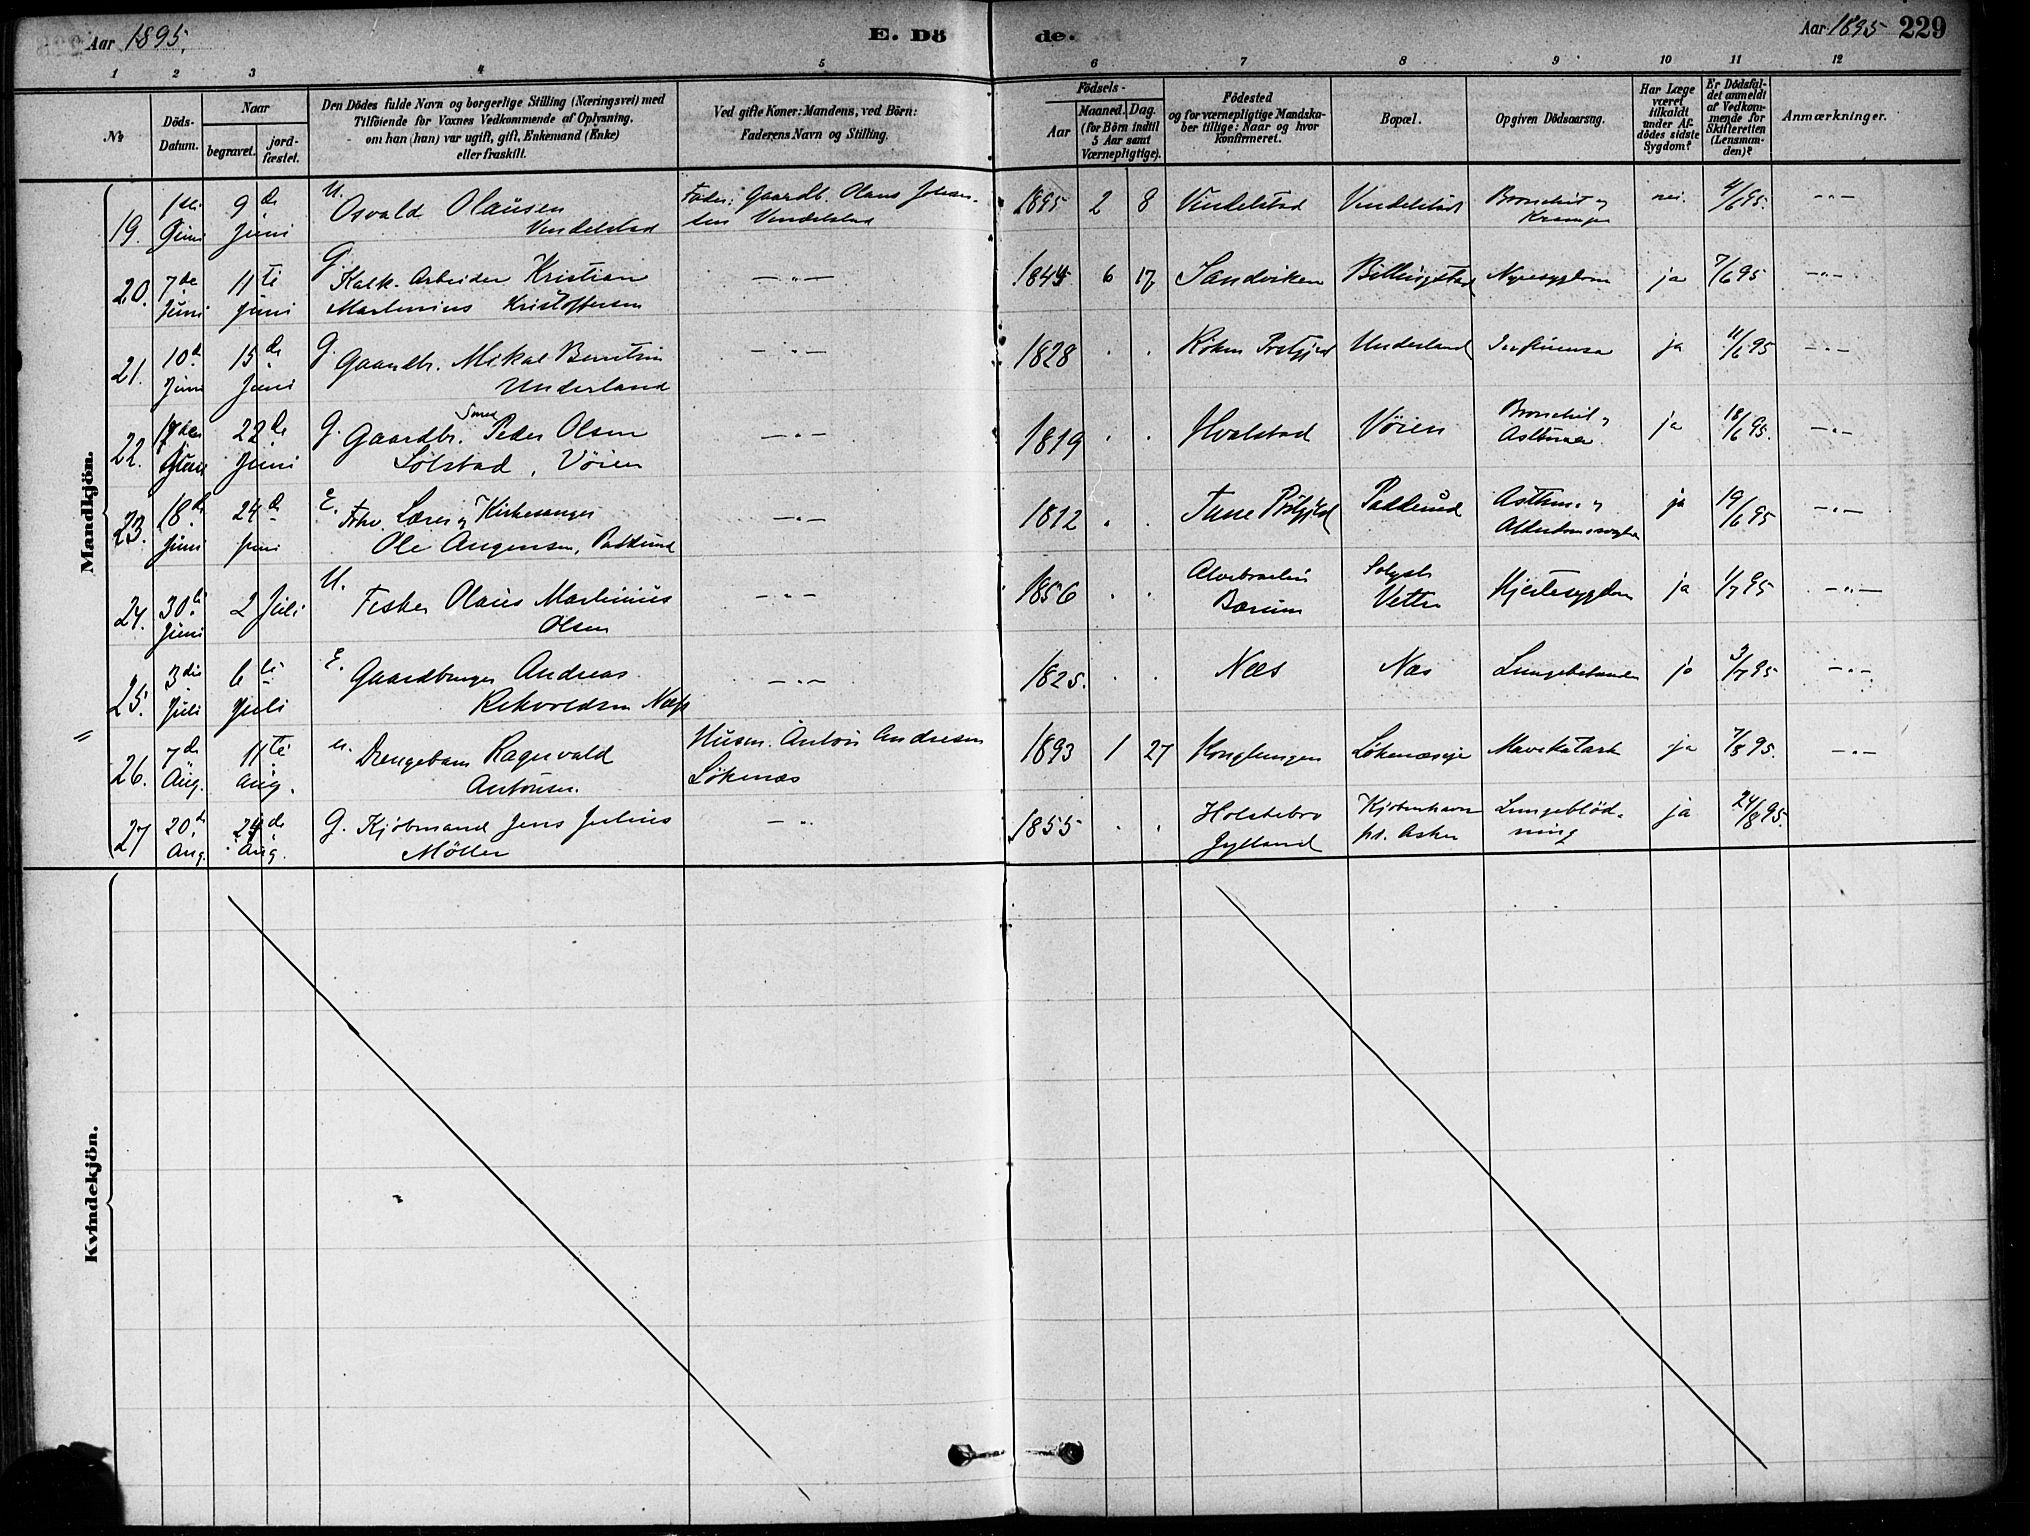 Aar 1895.
E. Dö
de.
Aar 1895 229
1 2 3 4 5 6 7 8 9 10 11 12
No
Döds-
Datum.
Naar
begravet.
jord-
fæstet.
Den Dödes fulde Navn og borgerlige Stilling (Næringsvei) med
Tilföiende for Voxnes Vedkommende af Oplysning.
om han (hun) var ugift, gift, Enkemand (Enke)
eller fraskilt.
Ved gifte Koner: Mandens, ved Börn:
Faderens Navn og Stilling.
Födsels-
Aar
Maaned. Dag.
(for Börn indtil
5 Aar samt
Værnepligtige).
Födested
og for værnepligtige Mandska-
ber tillige: Naar og hvor
konfirmeret.
Bopæl.
Opgiven Dödsaarsag.
Har Læge
været
tilkaldt
under Af-
dödes sidste
Sygdom?
Er Dödsfal-
det anmeldt
af Vedkom-
mende for
Skifteretten
(Lensman-
den)?
Anmærkninger.
Mandkjön.
19. 1ste Juni 9de Juni
U. Osvald Olausen
Vendelstad
Fader: Gaardb. Olaus Johan-
sen Vendelstad
1895 2 8 Vendelstad Vendelstad Bronchit og
Kramper
nei. 4/6 95. —„—
20. 7de Juni 11te Juni
G. Kalk. Arbeider Kristian
Martinius Kristoffersen
—„—
1844 6 17 Sandviken Billingstad Nyresygdom ja 7/6 95 —„—
21. 10de Juni 15de Juni
G. Gaardbr. Mikal Berntsen
Underland
—„—
1828 . . Røken Prstgjeld Underland Influensa ja 11/6 95 —„—
22. 17de Juni 22de Juni
G. Gaardbr. Peder Olsen
Sølstad, Vøien
—„—
1819 . . Hvalstad Vøien Bronchit og
Asthma
ja 18/6 95. —„—
23. 18de Juni 24de Juni
E. Fhv. Lærer og Kirkesanger
Ole Augensen, Padderud
—„—
1812 . . Tune Pstgjeld Padderud Asthma og
Alderdomssvaghed
ja 19/6 95 —„—
24. 30te Juni 2 Juli
U. Fisker Olaus Martinius
Olsen
—„—
1856 . .
Bærum
Vettre Hjertesygdom ja 1/7 95 —„—
25. 3die Juli 6te Juli
E. Gaardbruger Andreas
Rekvoldsen Næs
—„—
1825. . . Næs Næs Lungebetændelse ja 3/7 95 —„—
26. 7de Aug. 11te Aug.
u. Drengebarn Ragnvald
Antonsen.
Husm. Anton Andresen
Løkenæs
1893 1 27 Konglungen Løkenæseje Mavekatarh ja 7/8 95. —„—
27 20de Aug. 24de Aug.
G. Kjøbmand Jens Julius
Möller
—„—
1855 . . Holstebro
Jylland
Kjøbenhavn
Asker
Lungeblød-
ning
ja 24/8 95.
Kvindekjön.